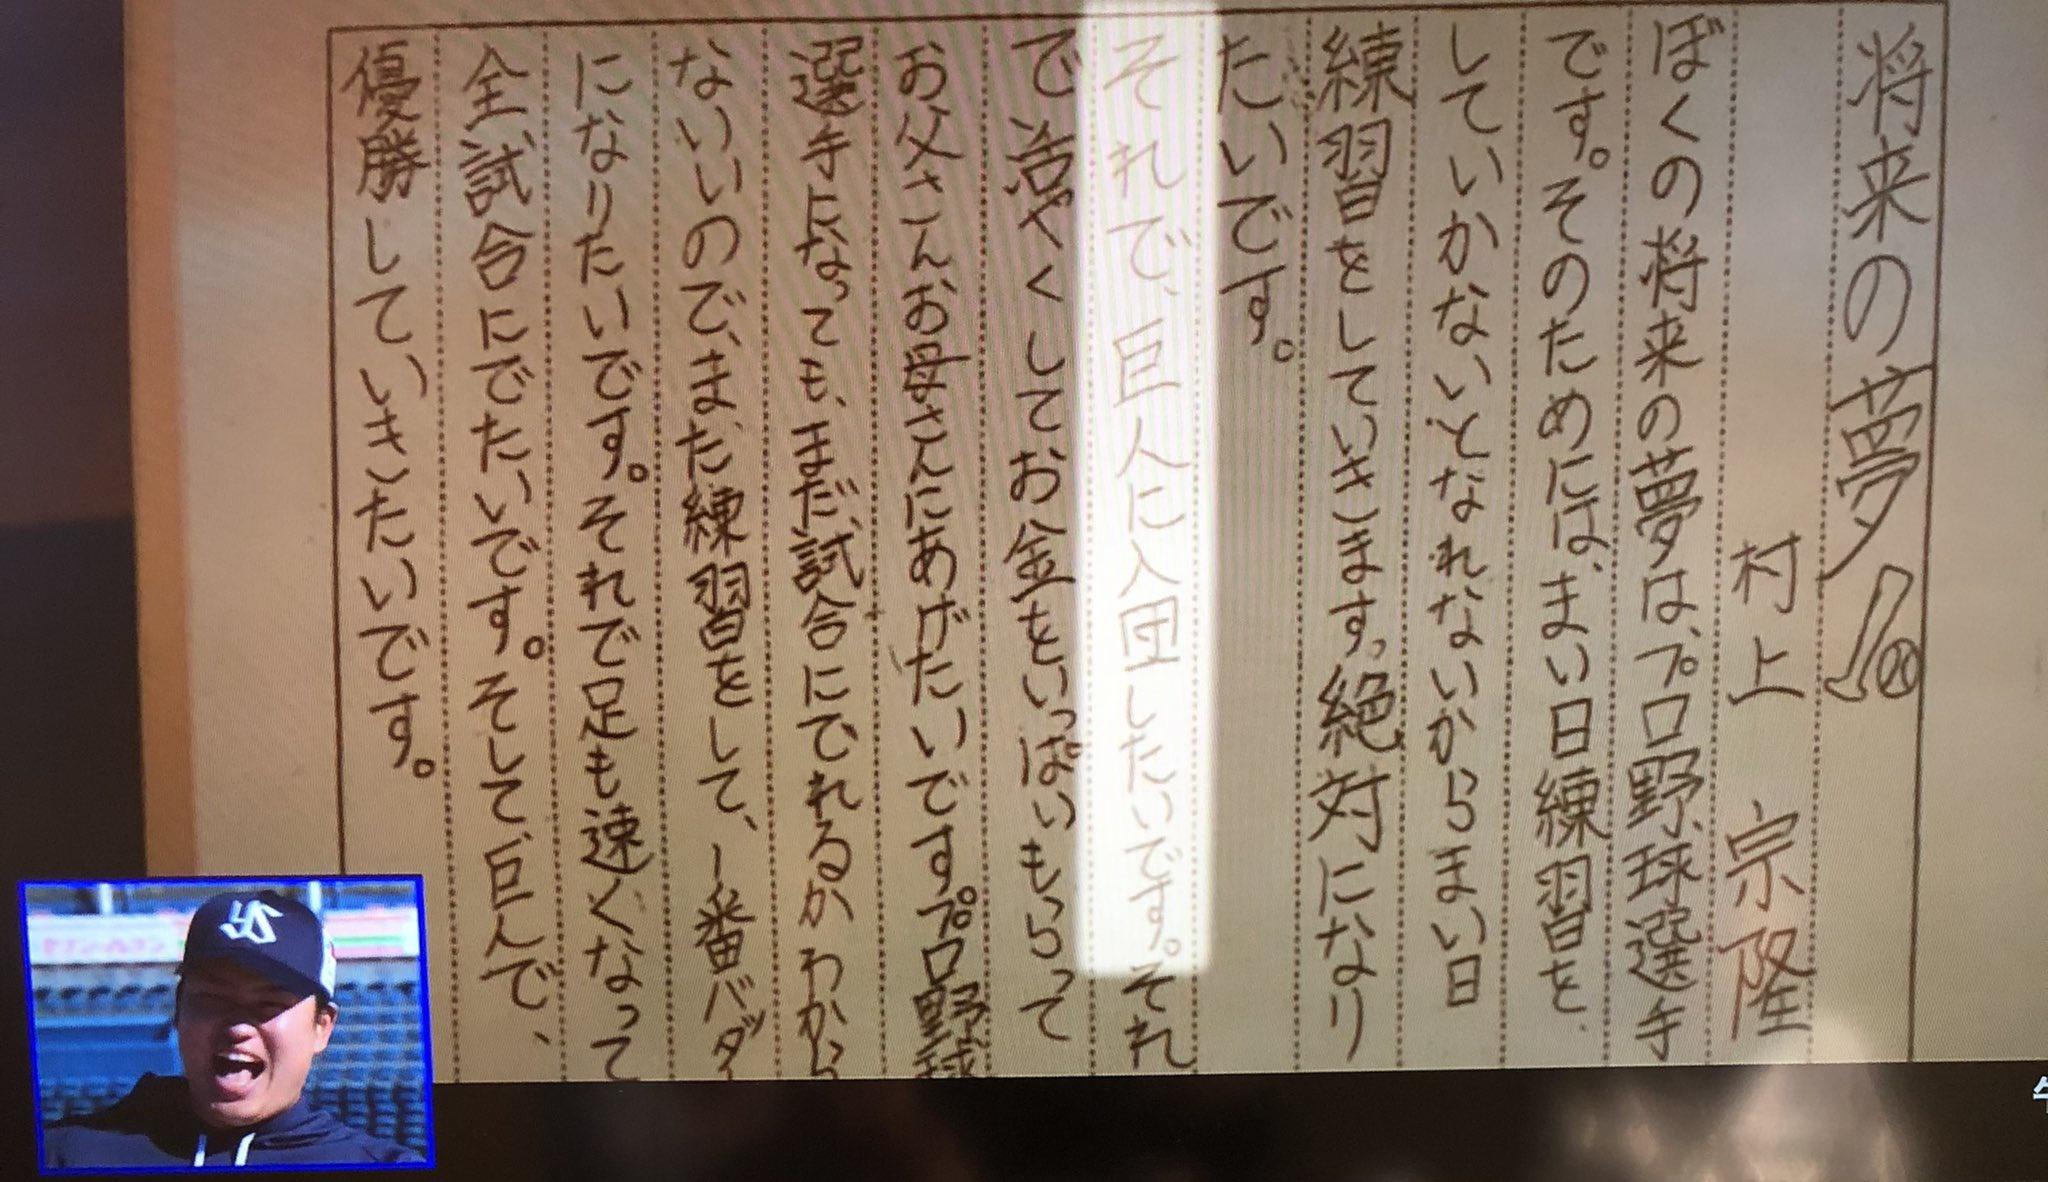 将来の夢
村上 宗隆
ぼくの将来の夢は、プロ野球選手
です。そのためには、まい日練習を
していかないとなれないからまい日
練習をしていきます。絶対になり
たいです。
それで、巨人に入団したいです。それ
で活やくしてお金をいっぱいもらって
お父さんお母さんにあげたいです。プロ野球
選手になっても、まだ試合にでれるかわから
ないいので、また練習をして、一番バダ
になりたいです。それで足も速くなって
全試合にでたいです。そして巨人で、
優勝していきたいです。